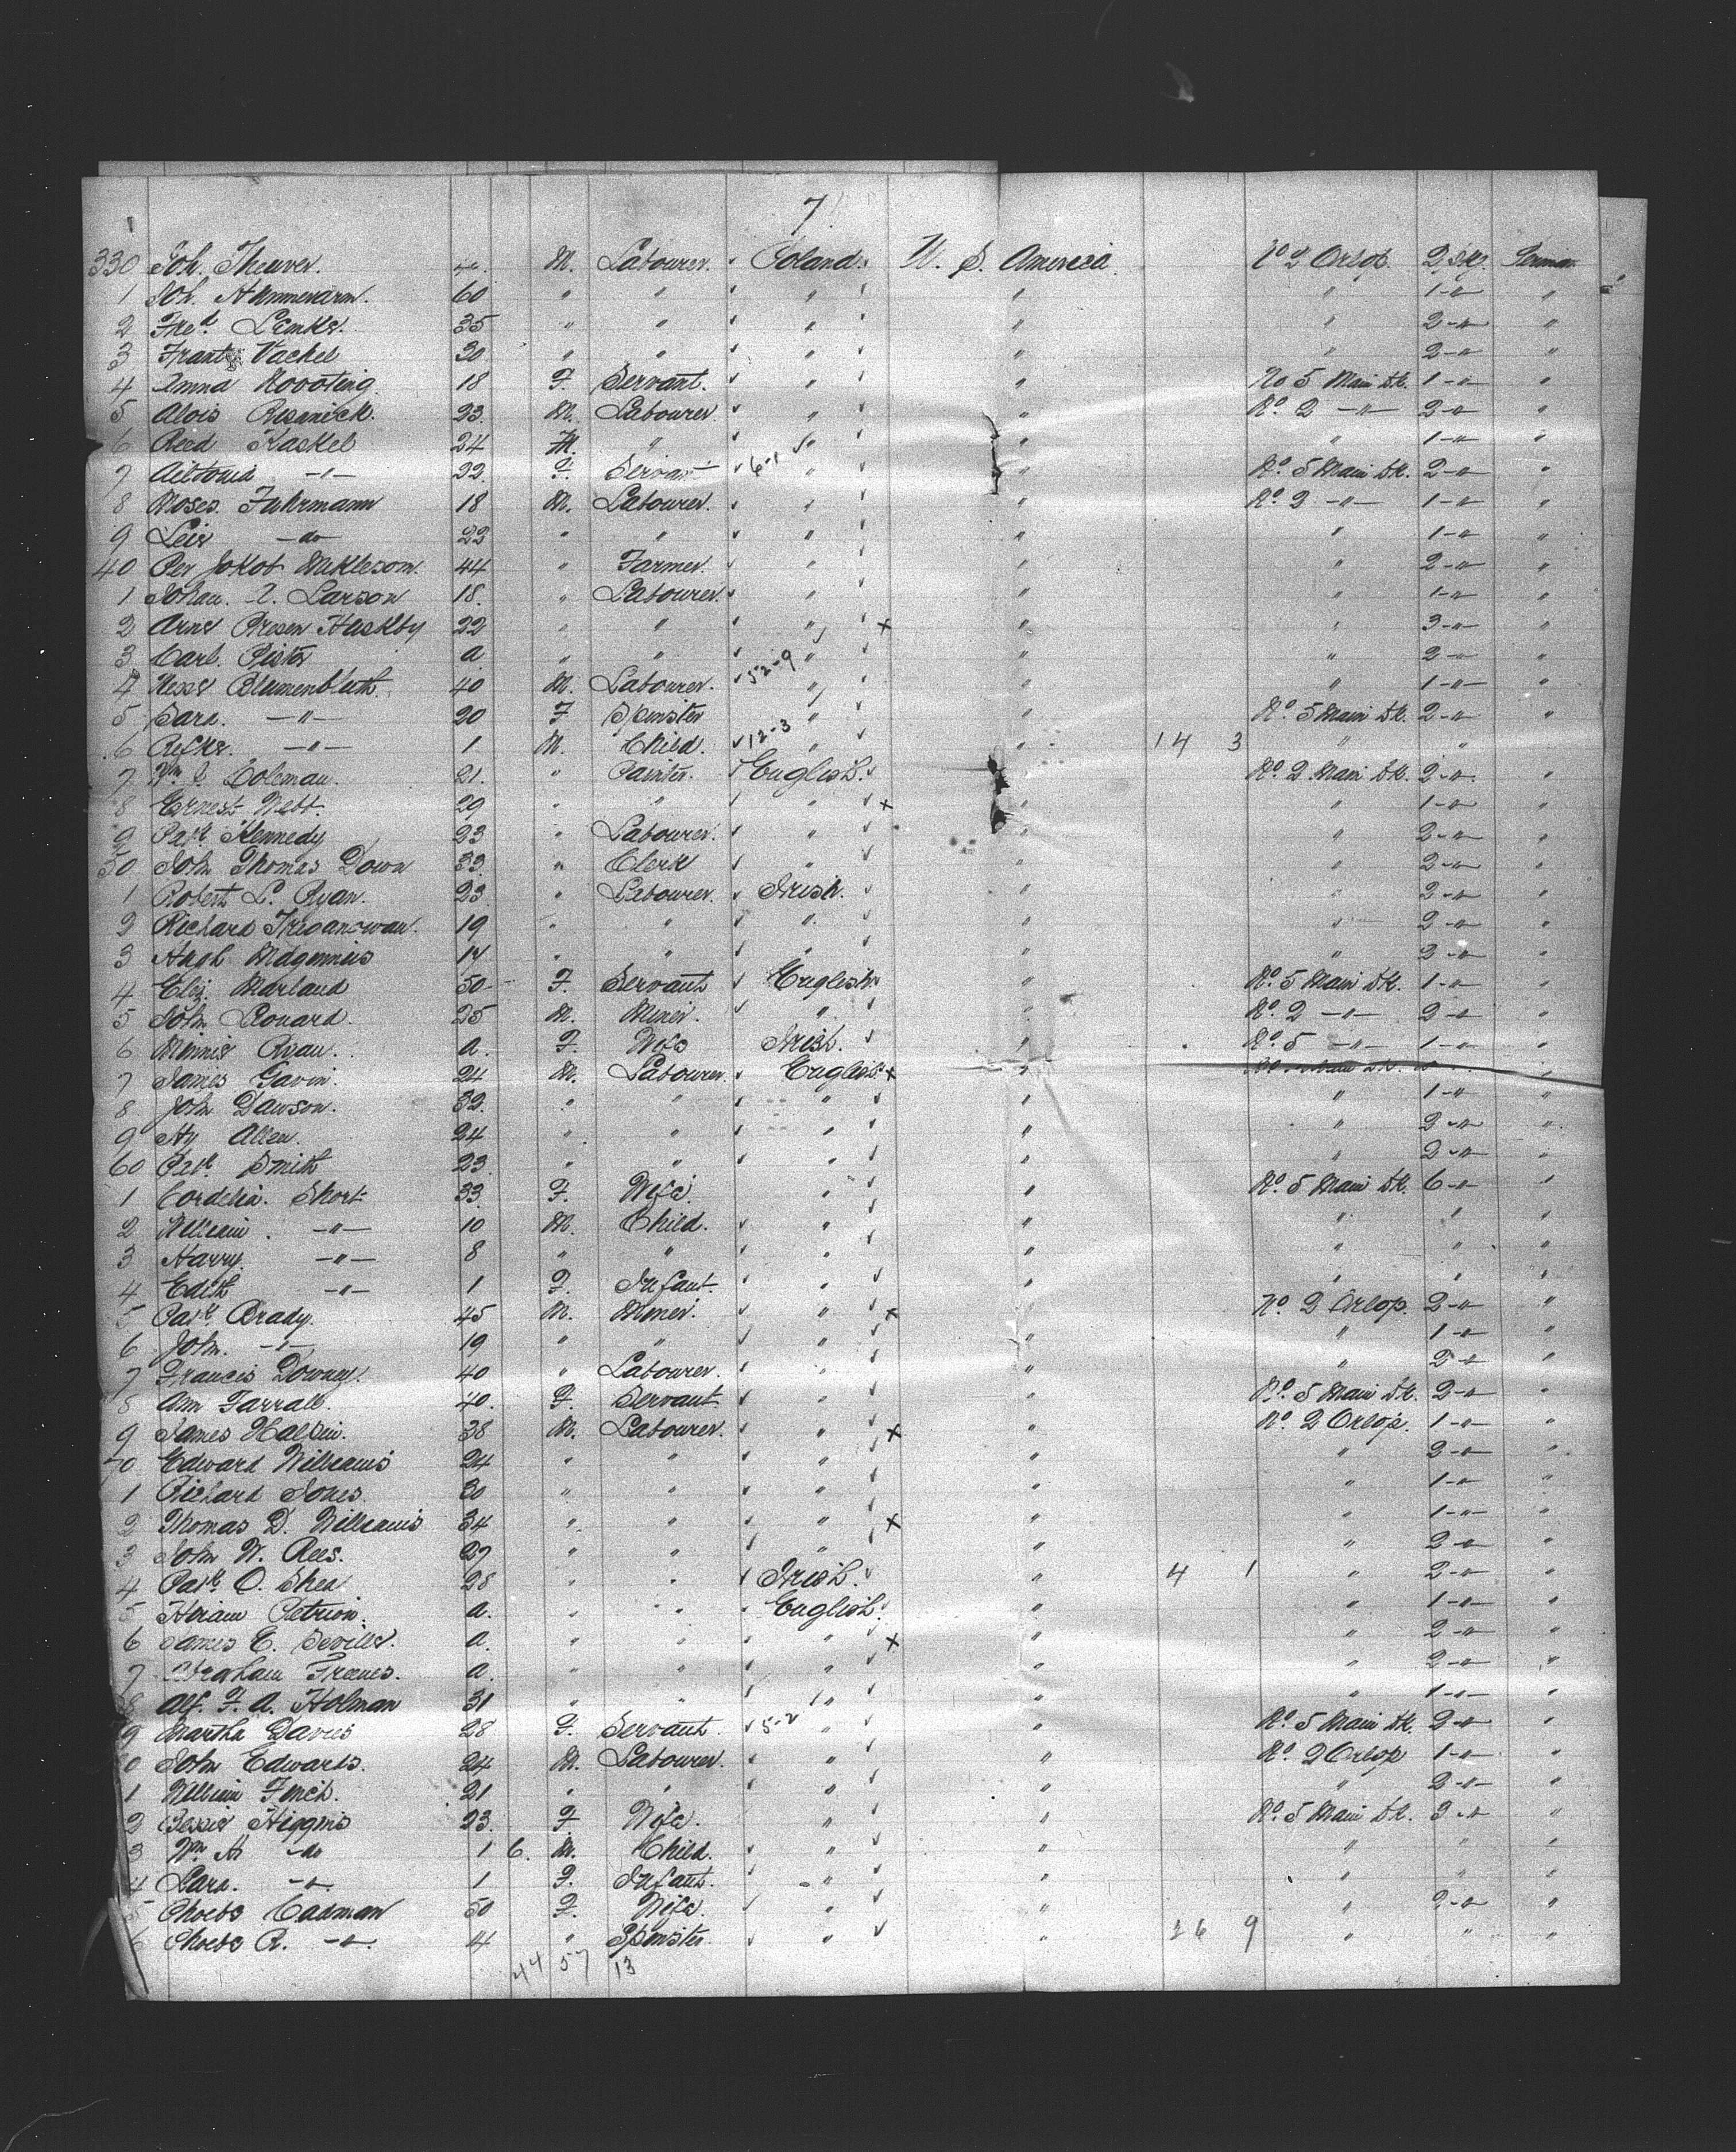 7
330 Joh. Theurer. M. Labourer. Poland. U. S. America. No 2 Orlop. 2 pkg.
1 Joh. 60 " " " " " 1 -"- "
2 Fred Lemke. 35 " " " " " 2 -"- "
3 Frantz Vackel 30 " " " " " 2 -"- "
4 Anna 18 F. Servant. " " No 5 Main Dk. 1 -"- "
5 Alois Resnick. 23 M. Labourer " " No 2 -"- 2 -"- "
6 Kaskel 24 M. " " " " 1 -"- "
7 -"- 22 F. Servant 6-1 " " No 5 Main Dk. 2 -"- "
8 Moses Fuhrmann 18 M. Labourer. " " No 2 -"- 1 -"- "
9 Leis -do- 22 " " " " " 1 -"- "
40 Per Jokob 44 " Farmer. " " " 2 -"- "
1 Johan. Larson 18. " Labourer. " " " 1 -"- "
2 Arne Haskby 22 " " " x " " 3 -"- "
3 Carl. Pister a " " " " " 2 -"- "
4 Blumenbluth. 40 M. Labourer. 52-9 " " " 1 -"- "
5 Sara. -"- 20 F Spinster " " No 5 Main Dk. 2 -"- "
6 -"- 1 M. Child. 12-3 " " 14 3 " "
7 Wm J. Coleman. 21. " Painter. English. " No 2 Main Dk. 2 -"- "
8 Ernest Webb. 29 " " " x " " 1 -"- "
9 Patk Kennedy 23 " Labourer. " " " 2 -"- "
50 John Thomas Down 33. " Clerk " " " 2 -"- "
1 Robert L. Ryan. 23 " Labourer. Irish. " " 2 -"- "
2 Richard Tregancowan. 19 " " " " " 2 -"- "
3 Hugh 14 " " " " " 2 -"- "
4 Eliz. Marland 50 F. Servant English " No 5 Main Dk. 1 -"- "
5 John Leonard. 25 M. Miner. " " No 2 -"- 2 -"- "
6 Minnie Ryan. a. F. Wife Irish. " No 5 -"- 1 -"- "
7 James Gavin. 24 M. Labourer. English. x " "
8 John Dawson. 32. " " " " " 1 -"- "
9 Hy Allen. 24 " " " " " 2 -"- "
60 Patk Smith 23 " " " " " 2 -"- "
1 Cordelia. Short 33. F. Wife. " " No 5 Main Dk. 6 -"- "
2 William. -"- 10 M. Child. " " " " "
3 Harry. -"- 8 " " " " " " "
4 Edith -"- 1 F. Infant. " " " " "
5 Patk Brady. 45 M. Miner. " x " No 2 Orlop. 2 -"- "
6 John. -"- 19 " " " " " 1 -"- "
7 Francis Downey. 40 " Labourer. " " " 2 -"- "
8 Ann Farrall. 40. F. Servant " " No 5 Main Dk. 2 -"- "
9 James Halpin. 38 M. Labourer. " x " No 2 Orlop. 1 -"- "
70 Edward Williams 24 " " " " " 2 -"- "
1 Richard Jones. 30 " " " " " 1 -"- "
2 Thomas D. Williams 34 " " " x " " 1 -"- "
3 John W. Rees. 27 " " " " " 2 -"- "
4 Patk O. Shea 28 " " Irish. " 4 1 " 2 -"- "
5 Hiram a. " " English. " " 1 -"- "
6 James E. Seville. a. " " " x " " 2 -"- "
7 Abraham Froomes. a. " " " " " 2 -"- "
8 Alf. F. A. Holman 31 " " " " " 1 -"- "
9 Martha Davies 28 F. Servant. 5-2 " " No 5 Main Dk. 2 -"- "
0 John Edwards. 24 M. Labourer. " " No 2 Orlop 1 -"- "
1 William Finch. 21 " " " " " 2 -"- "
2 Bessie Higgins 23. F. Wife. " " No 5 Main Dk. 3 -"- "
3 Wm H -do 1 6. M. Child. " " " " "
4 Sara. -"- 1 F. Infant. " " " " "
5 Phoebe Cadman 50 F. Wife. " " " 2 -"- "
6 Phoebe R. -"- 4 " Spinster. " " 26 9 " " "
44 57 13